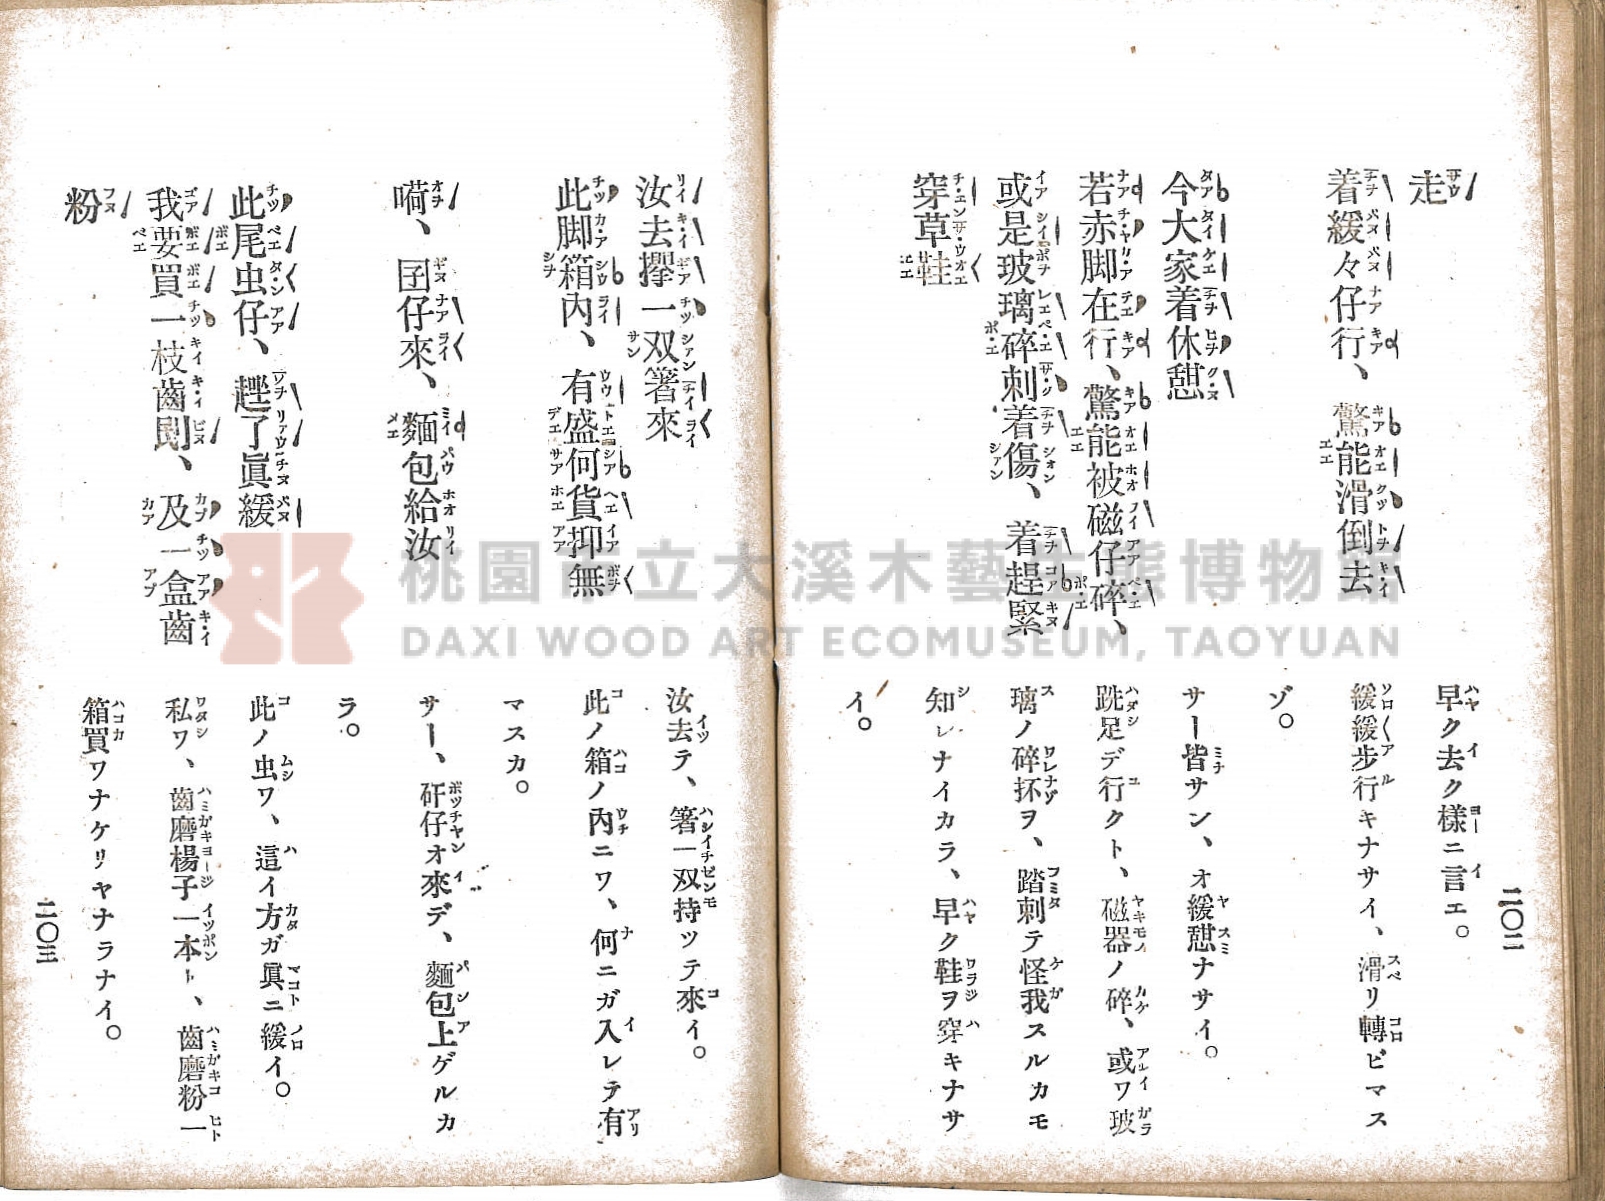 走
着緩々仔行、驚能滑倒去
今大家着休憇
若赤脚在行、驚能被磁仔碎、
或是玻璃碎刺着傷、着趕緊
穿草鞋
早ク去ク樣ニ言エ。
緩緩步行キナサイ、滑リ轉ビマス
ゾ。
サー皆サン、オ緩憇ナサイ。
跣足デ行クト、磁器ノ碎、或ワ玻
璃ノ碎抔ヲ、踏刺テ怪我スルカモ
知レナイカラ、早ク鞋ヲ穿キナサ
イ。
二〇二
汝去攑一双箸來
此脚箱內、有盛何貨抑無
嗬、囝仔來、麵包給汝
此尾虫仔、趖了眞緩
我要買一枝齒刡、及一盒齒
粉
汝去テ、箸一双持ツテ來イ。
此ノ箱ノ內ニワ、何ニガ入レテ有
マスカ。
サー、矸仔オ來デ、麵包上ゲルカ
ラ。
此ノ虫ワ、這イ方ガ眞ニ緩イ。
私ワ、齒磨楊子一本ト、齒磨粉一
箱買ワナケリヤナラナイ。
二〇三
桃園市立大溪木藝生態博物館
DAXI WOOD ART ECOMUSEUM, TAOYUAN